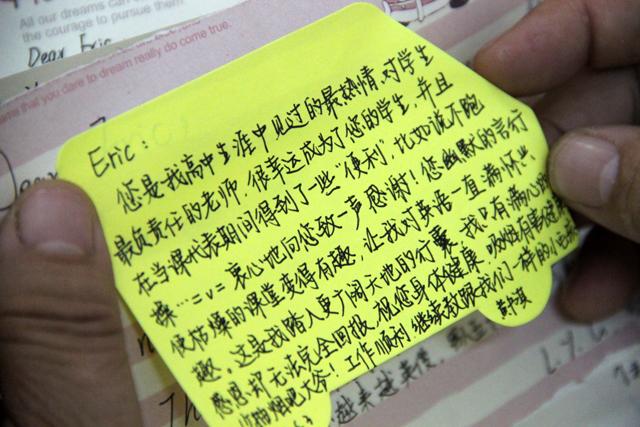 All our dreams can
the courage to pursue them.
Dear Eric
ame that you dare to dream really do come true.
Dear
Eric:
您是我高中生涯中见过的最热情、对学生
最负责任的老师，很幸运成为了您的学生，并且
在当课代表期间得到了一些“便利”，比如说不跑
操…=v= 衷心地向您致一声感谢！您幽默的言行
使枯燥的课堂变得有趣，让我对英语一直满怀兴
趣。这是我踏入更广阔天地的行囊，我只有满心的
感恩却无法完全回报，祝您身体健康，
少抽烟吧大爷！工作顺利 继续教跟我们一样的小
越来越美
L.Y.